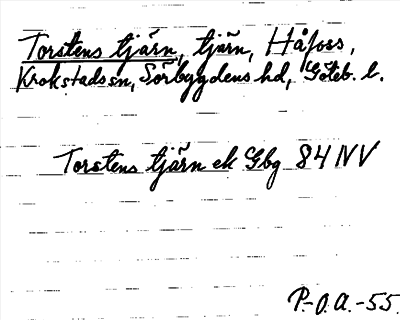 Torstens tjärn, tjärn, Håfoss,
Krokstads sn, Sörbygdens hd, Göteb. l.
Torstens tjärn ek Gbg 84 NV
P.-O.A.-55.